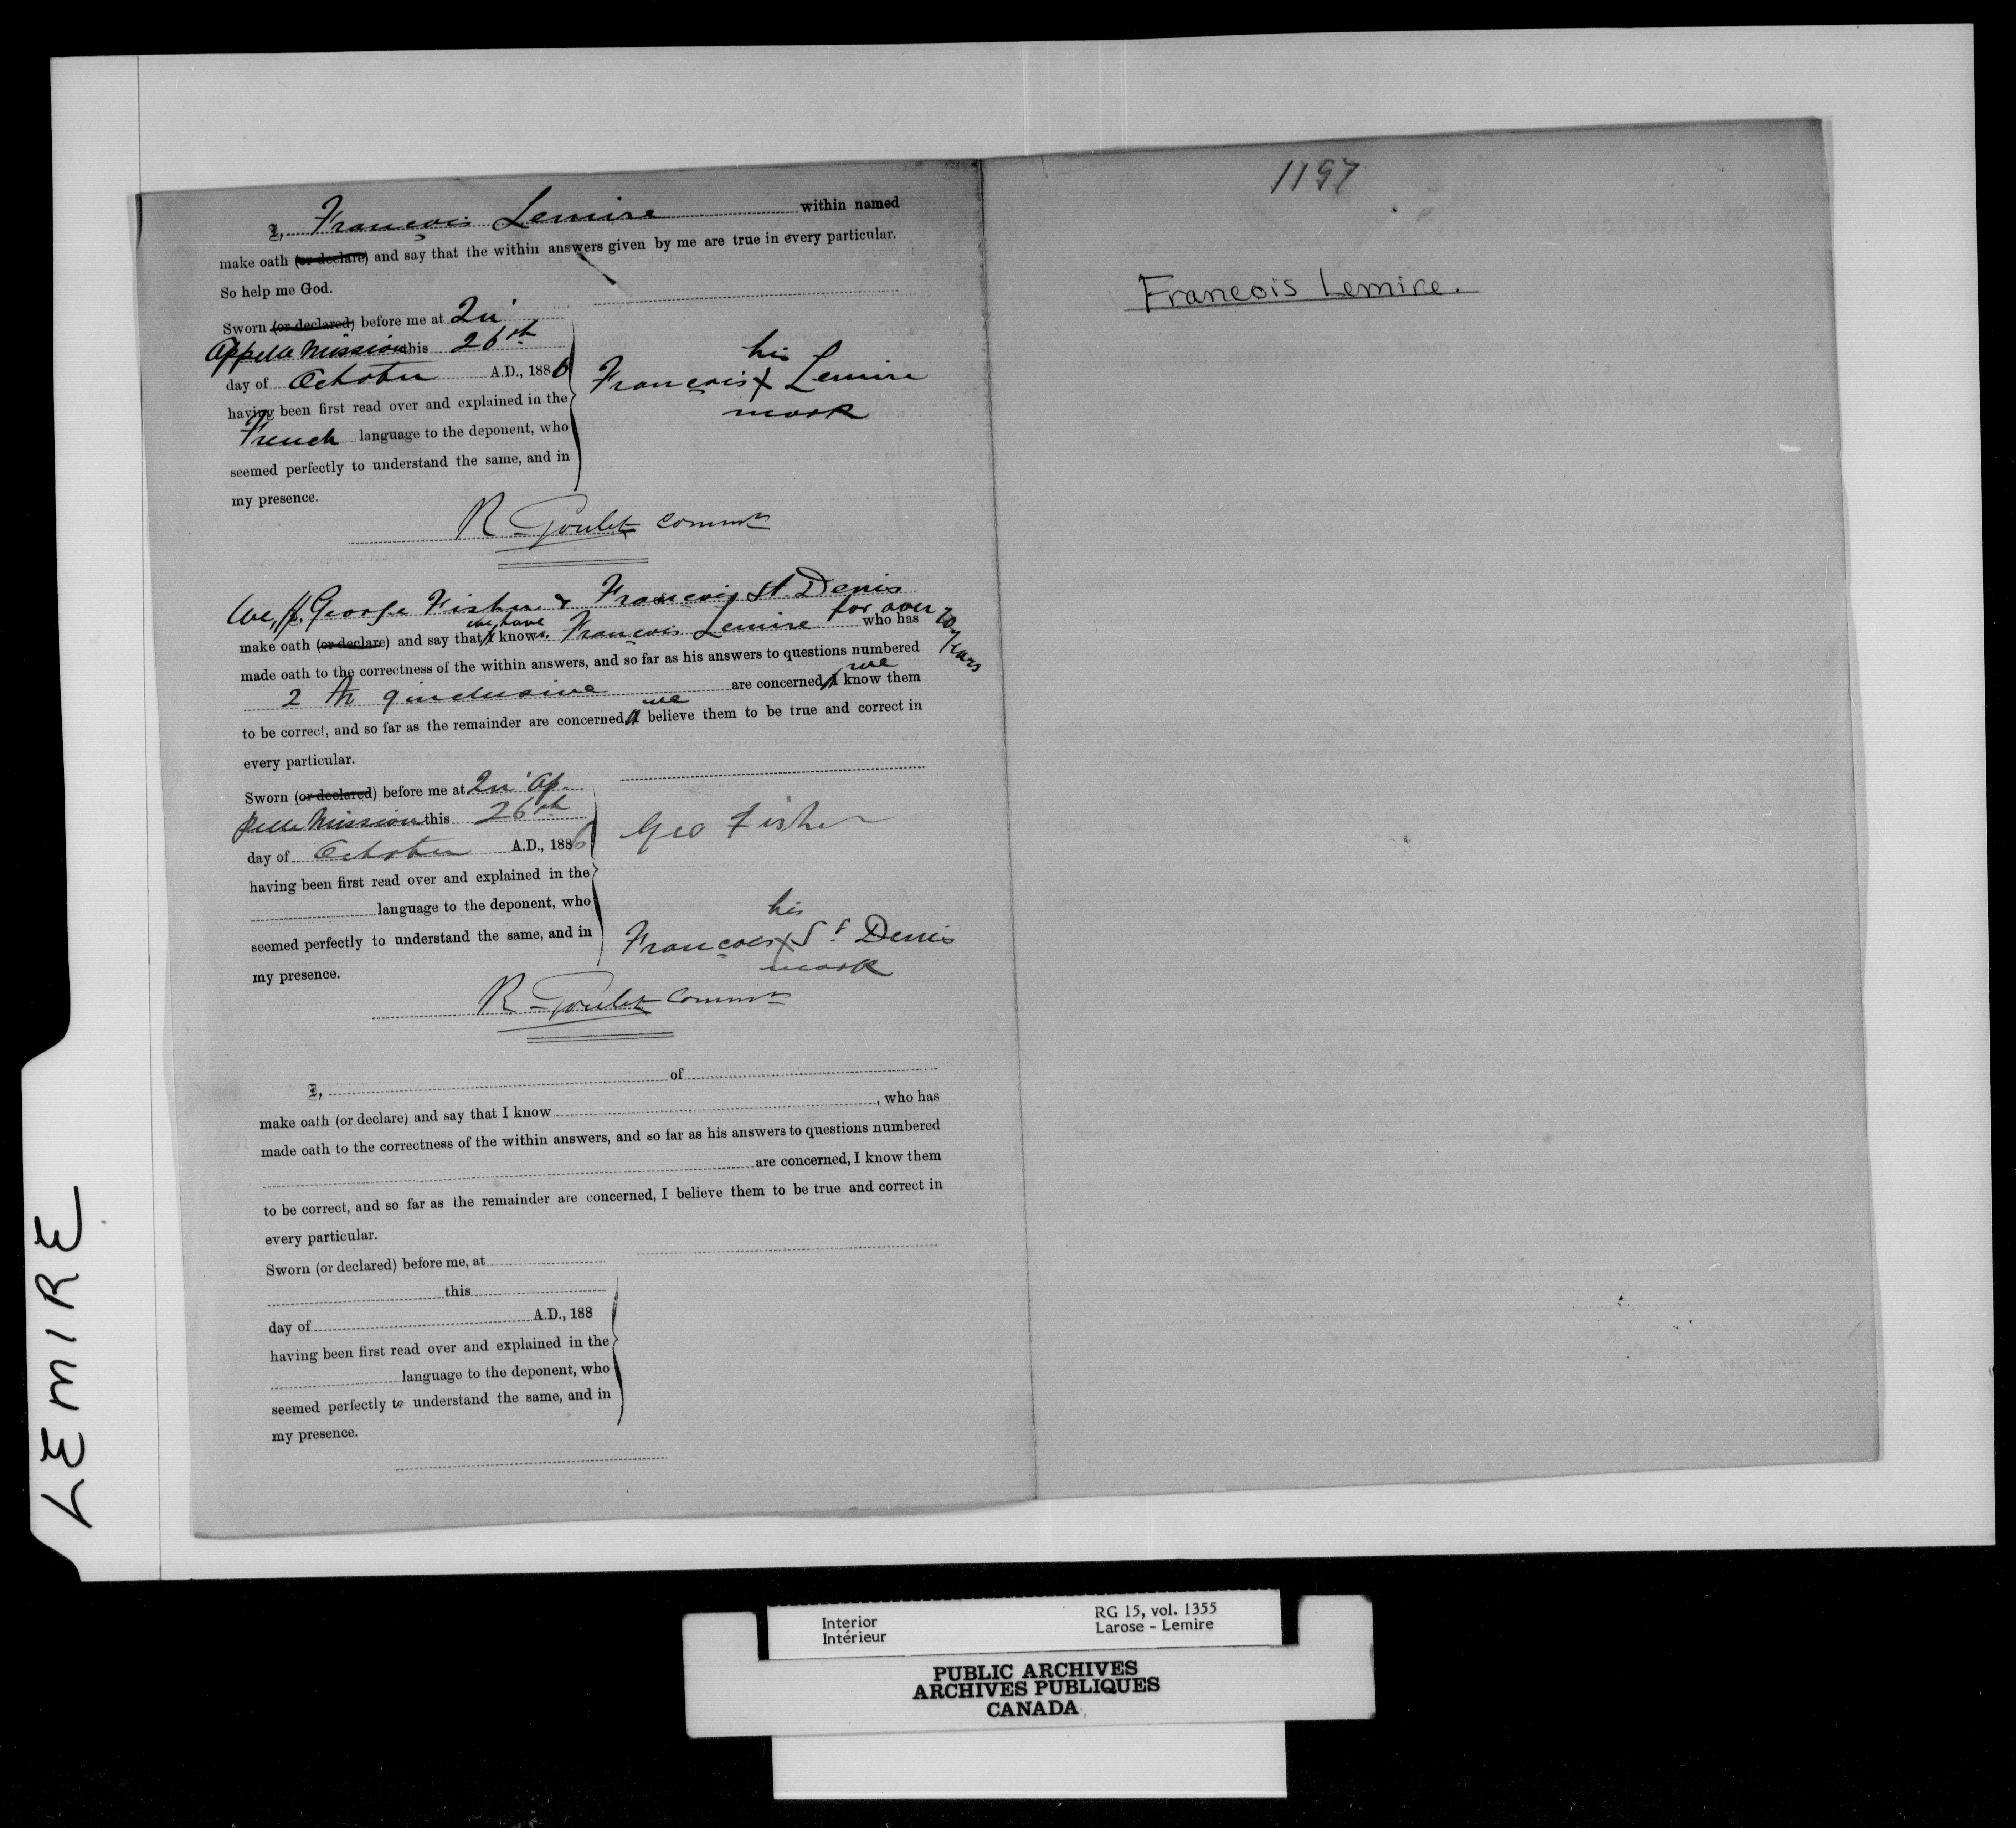 I, François Lemire within named
make oath (or declare) and say that the within answers given by me are true in every particular.
So help me God.
Sworn (or declared) before me at Qu'
Appelle Mission this 26th
day of October A.D., 1886
having been first read over and explained in the
French language to the deponent, who
seemed perfectly to understand the same, and in
my presence.
his
François X Lemire
mark
R Goulet Commr
We, I, George Fisher & François St. Denis
make oath (or declare) and say that I we have known François Lemire for over 20 years who has
made oath to the correctness of the within answers, and so far as his answers to questions numbered
2 to 9 inclusive are concerned, I we know them
to be correct, and so far as the remainder are concerned, I we believe them to be true and correct in
every particular.
Sworn (or declared) before me at Qu' Ap-
pelle Mission this 26th
day of October A.D., 1886
having been first read over and explained in the
language to the deponent, who
seemed perfectly to understand the same, and in
my presence.
Geo Fisher
his
François X St Denis
mark
R Goulet Commr
I, of
make oath (or declare) and say that I know , who has
made oath to the correctness of the within answers, and so far as his answers to questions numbered
are concerned, I know them
to be correct, and so far as the remainder are concerned, I believe them to be true and correct in
every particular.
Sworn (or declared) before me, at
this
day of A.D., 188
having been first read over and explained in the
language to the deponent, who
seemed perfectly to understand the same, and in
my presence.
1197
Francois Lemire.
LEMIRE
Interior
Intérieur
RG 15, vol. 1355
Larose - Lemire
PUBLIC ARCHIVES
ARCHIVES PUBLIQUES
CANADA